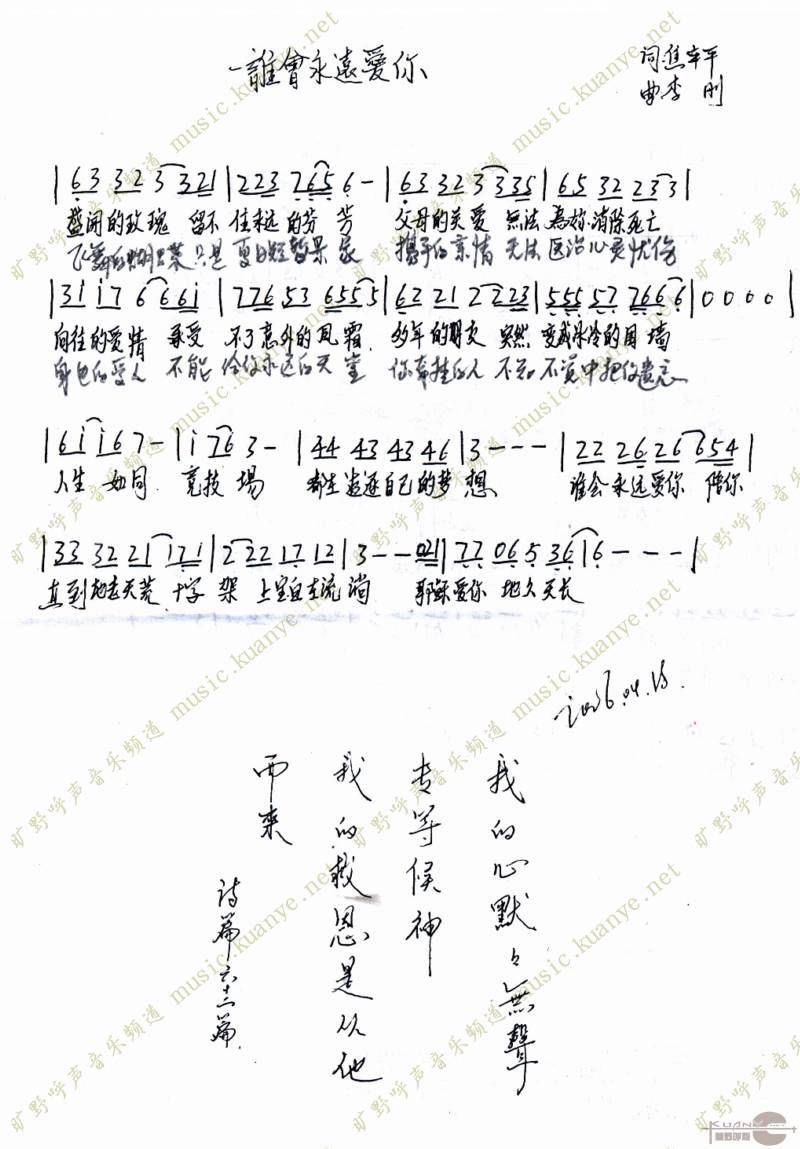 誰會永遠愛你
词:焦
曲 李 刚
|63 32 3321|223 765 6-|63 323335|65 32 233|
盛开的玫瑰 留不住永远的芬芳 父母的关爱 無法為你消除死亡
飞舞的蝴蝶 只是夏日短暂景象 携手的亲情 无法医治心灵忧伤
|31 i7 6 66i|776 53 6555|62 21 2223|555 57 7666|0000|
向往的爱情 承受不了意外的风霜 多年的朋友 突然变成冰冷的围墙
身边的爱人 不能给你永远的天堂 你牵挂的人 不知不觉中把你遗忘
|6i i67-|i 763-|44 43 43 46|3---|22 26 26 654|
人生如同 竞技場 都在追逐自己的梦想 谁会永远爱你 陪你
|33 32 21 171|2 22 17 12|3--021|77 06 5 36|6---|
直到地老天荒 十字架上宝血在流淌 耶稣爱你 地久天长
2006.04.15.
我的心默々無聲
专等候神
我的救恩是从他
而来
诗篇六十二篇
旷野呼声音乐频道 music.kuanye.net
KUANYE.NET
旷野呼声